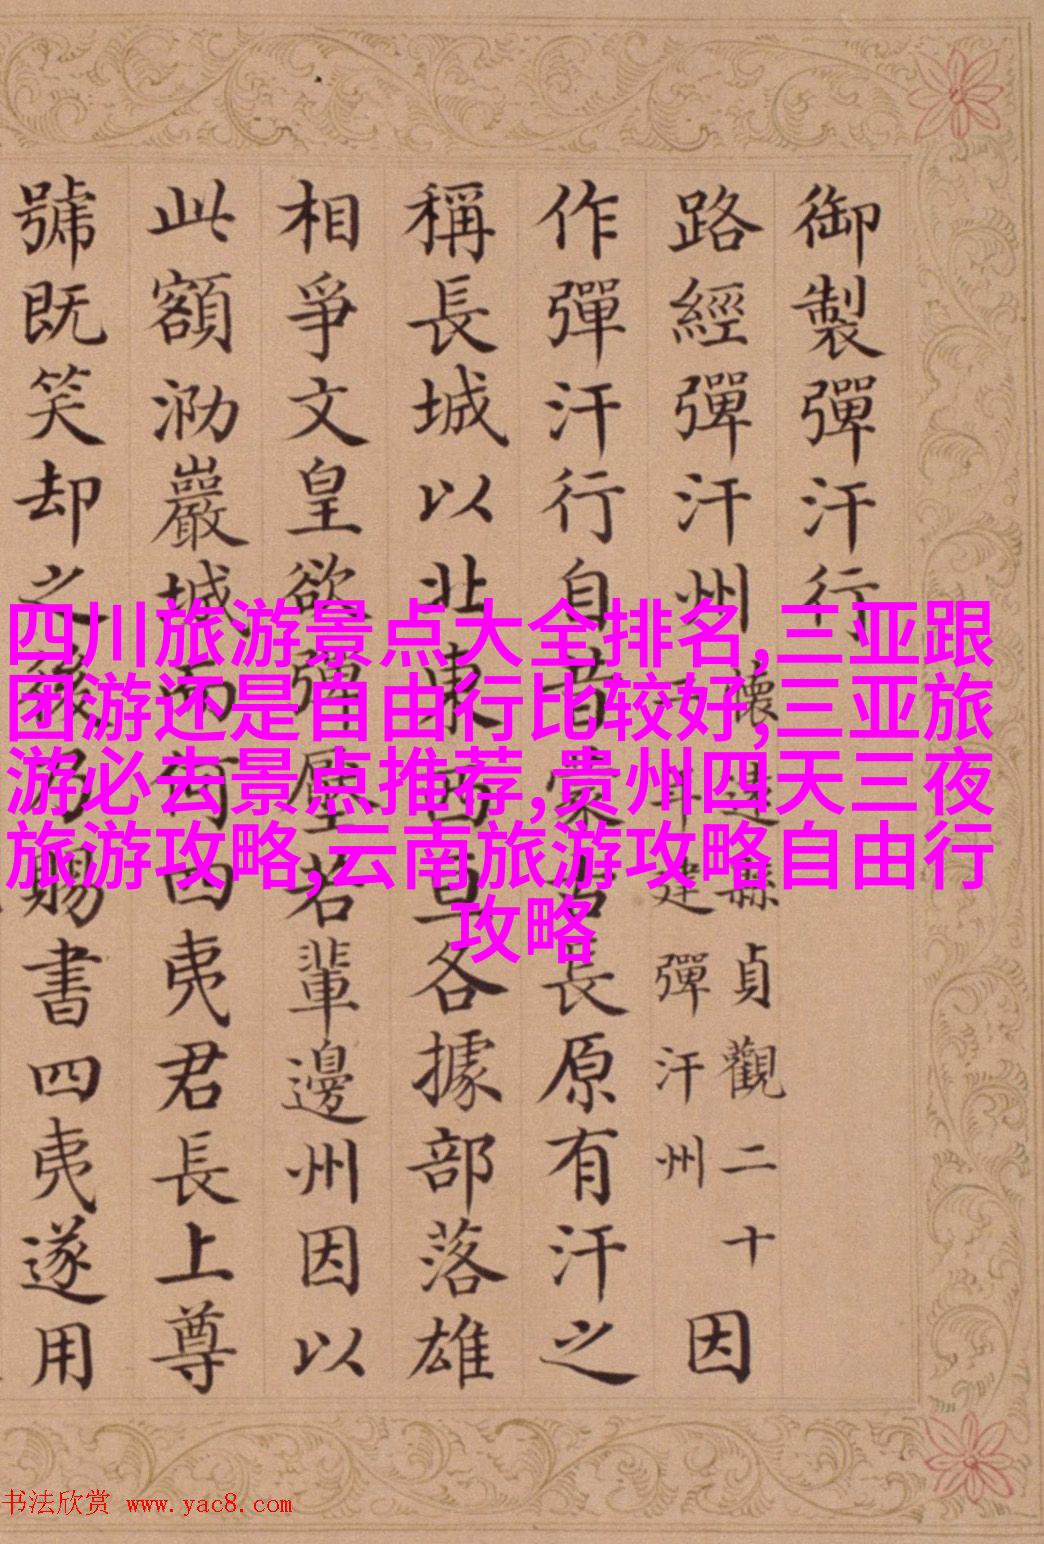 御製彈汗行
路經彈汗州
縣貞觀二十
年建彈汗州
因
作彈汗行自昔蒙古長原有汗之
稱長城以北東西各據部落雄
相爭文皇欲彈壓若輩邊州因以
此額泐巖城而何四夷君長上尊
號既笑却之後乃賜書四夷遂用
四川旅游景点大全排名,三亚跟
团游还是自由行比较好,三亚旅
游必去景点推荐,贵州四天三夜
旅游攻略,云南旅游攻略自由行
攻略
书法欣赏 www.yac8.com